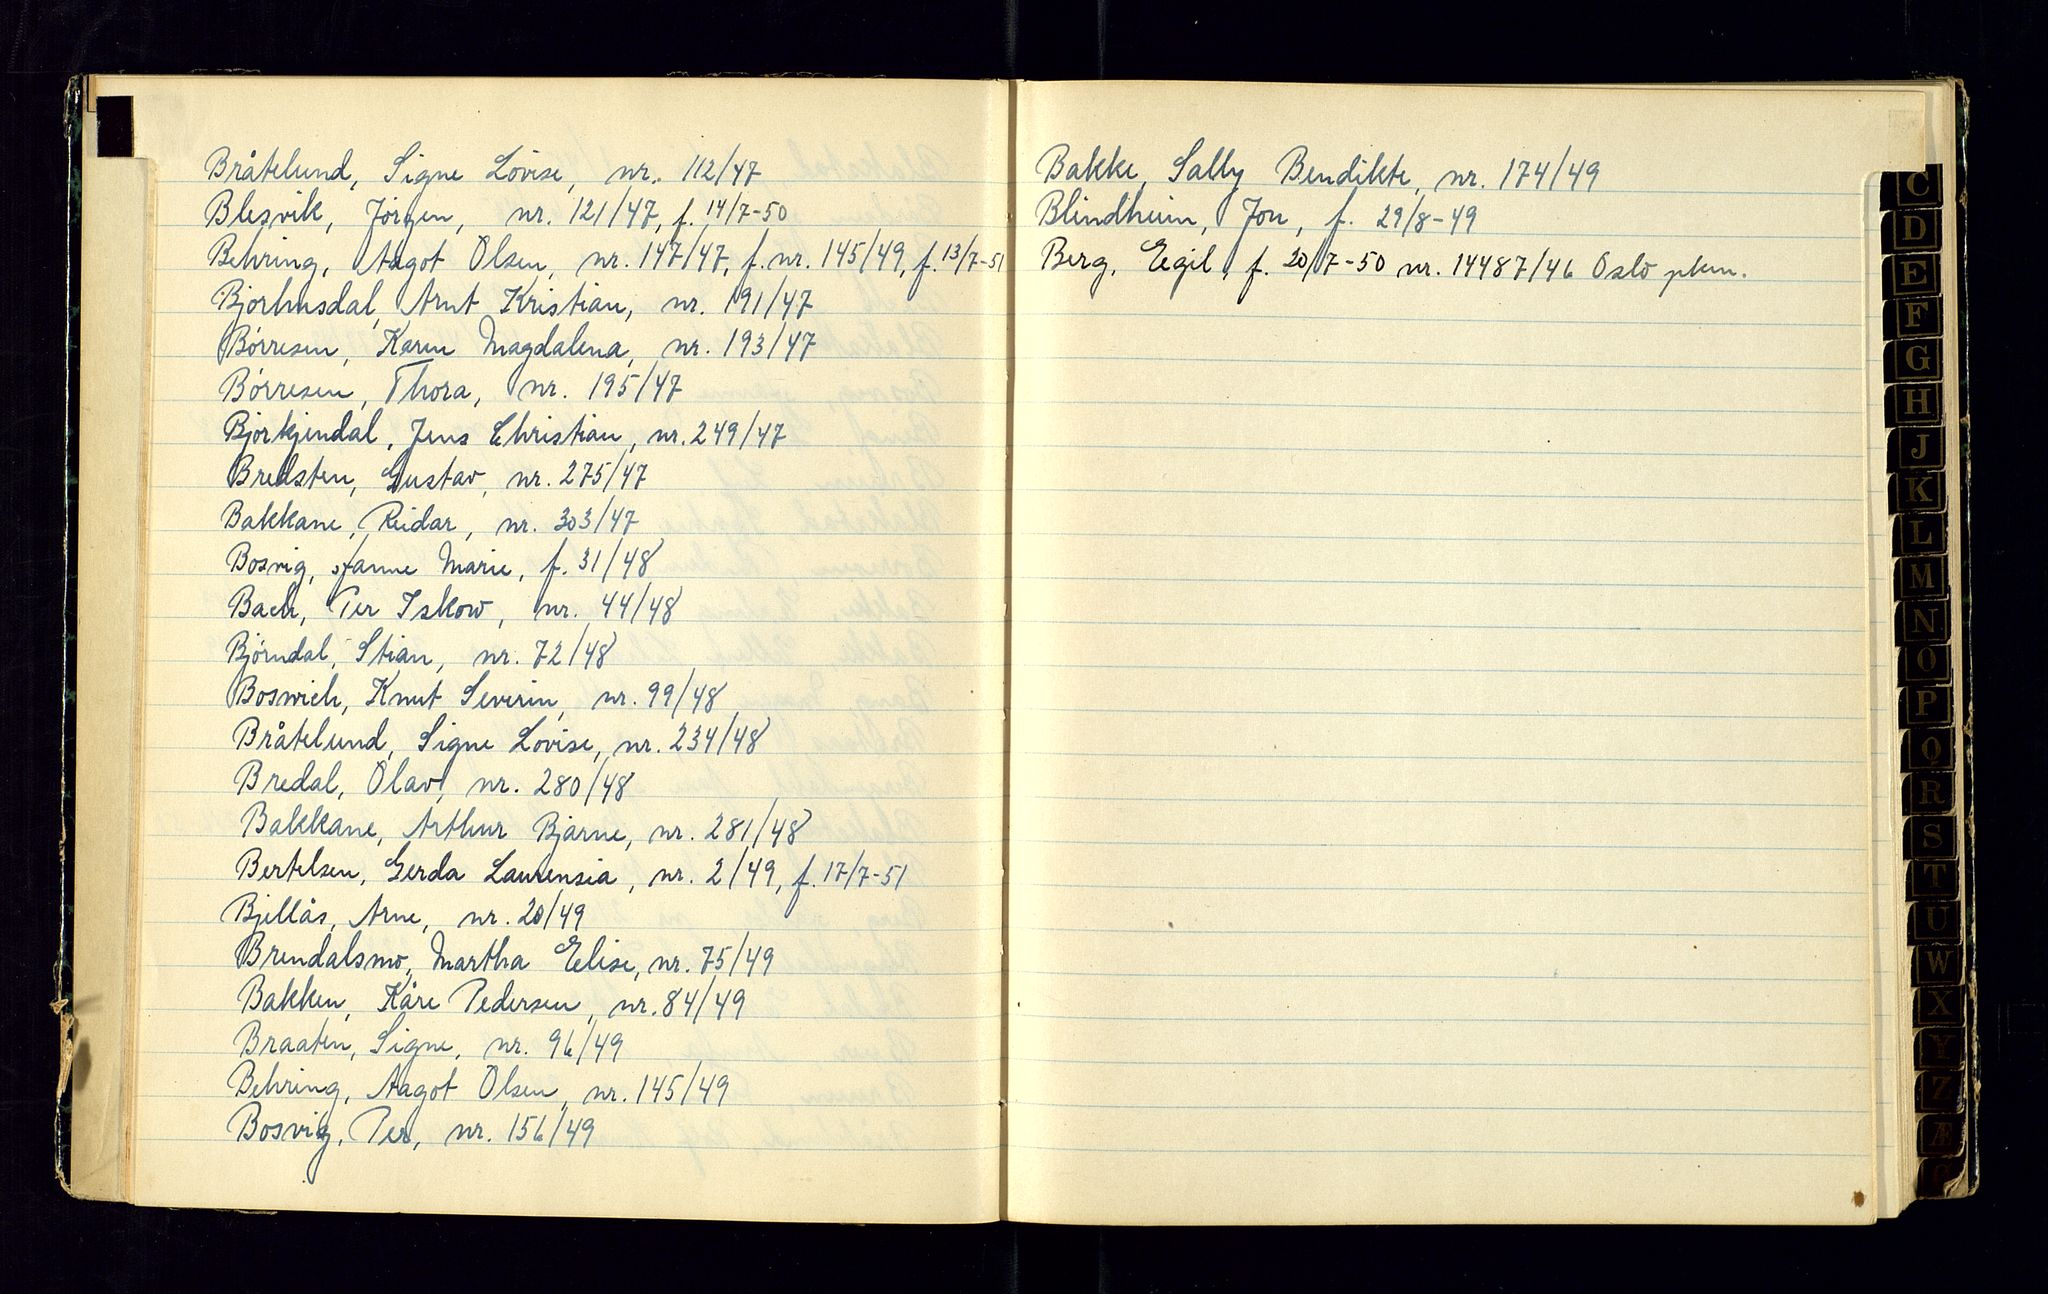 Bråtelund, Signe Lovise, nr. 112/47
Blesvik, Jörgen, nr. 121/47, f. 14/7-50
Behring, Aagot Olsen, nr. 147/47, f. nr. 145/49, f. 13/7-51
Bjorhusdal, Arnt Kristian, nr. 191/47
Börresen, Karen Magdalena, nr. 193/47
Börresen, Thora, nr. 195/47
Björkjendal, Jens Christian, nr. 249/47
Bredsten, Gustav, nr. 275/47
Bakkane, Reidar, nr. 303/47
Bosvig, Janne Marie, f. 31/48
Bach, Per Iskow, nr. 44/48
Björndal, Stian, nr. 72/48
Boswich, Knut Severin, nr. 99/48
Bråtelund, Signe Lovise, nr. 234/48
Bredal, Olav, nr. 280/48
Bakkane, Arthur Bjarne, nr. 281/48
Bertelsen, Gerda Laurensia, nr. 2/49, f. 17/7-51
Bjellås, Arne, nr. 20/49
Brendalsmo, Martha Elise, nr. 75/49
Bakken, Kåre Pedersen, nr. 84/49
Braaten, Signe, nr. 96/49
Behring, Aagot Olsen, nr. 145/49
Bosvig, Per, nr. 156/49
Bakke, Sally Bendikte, nr. 174/49
Blindheim, Jon, f. 29/8-49
Berg, Egil, f. 20/7-50 nr. 14487/46 Oslo pkm.
C
D
E
F
G
H
J
K
L
M
N
O
P
Q
R
S
T
U
W
X
Y
Z
Æ